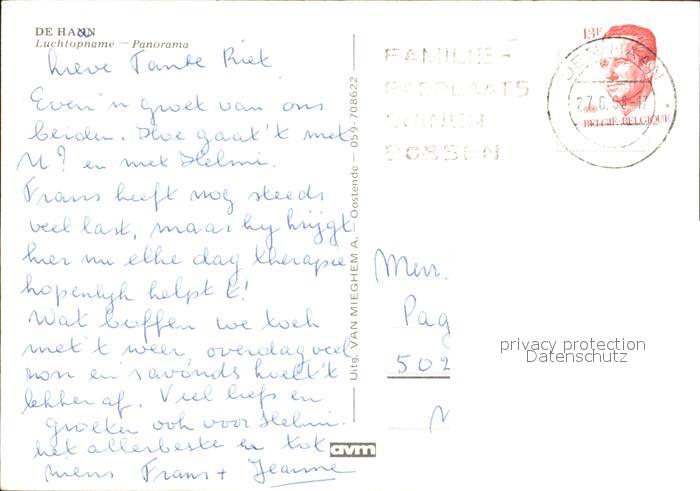 DE HAAN
Luchtopname — Panorama
Lieve Tante Riet
Even 'n groet van ons
beiden. Hoe gaat 't met
U? en met Helmi.
Frans heeft nog steeds
veel last, maar hij krijgt
hier nu elke dag therapie
hopenlijk helpt 't!
Wat boffen we toch
met 't weer, overdag veel
zon en 's avonds koelt 't
lekker af. Veel liefs en
groeten ook voor Helmi.
het allerbeste en tot
ziens Frans + Jeanne
Uitg. VAN MIEGHEM A. — Oostende — 059-708622
avm
FAMILIE-
BADPLAATS
DUINEN
BOSSEN
13F
DE HAAN
BELGIË-BELGIQUE
Mevr.
Pag
502
privacy protection
Datenschutz